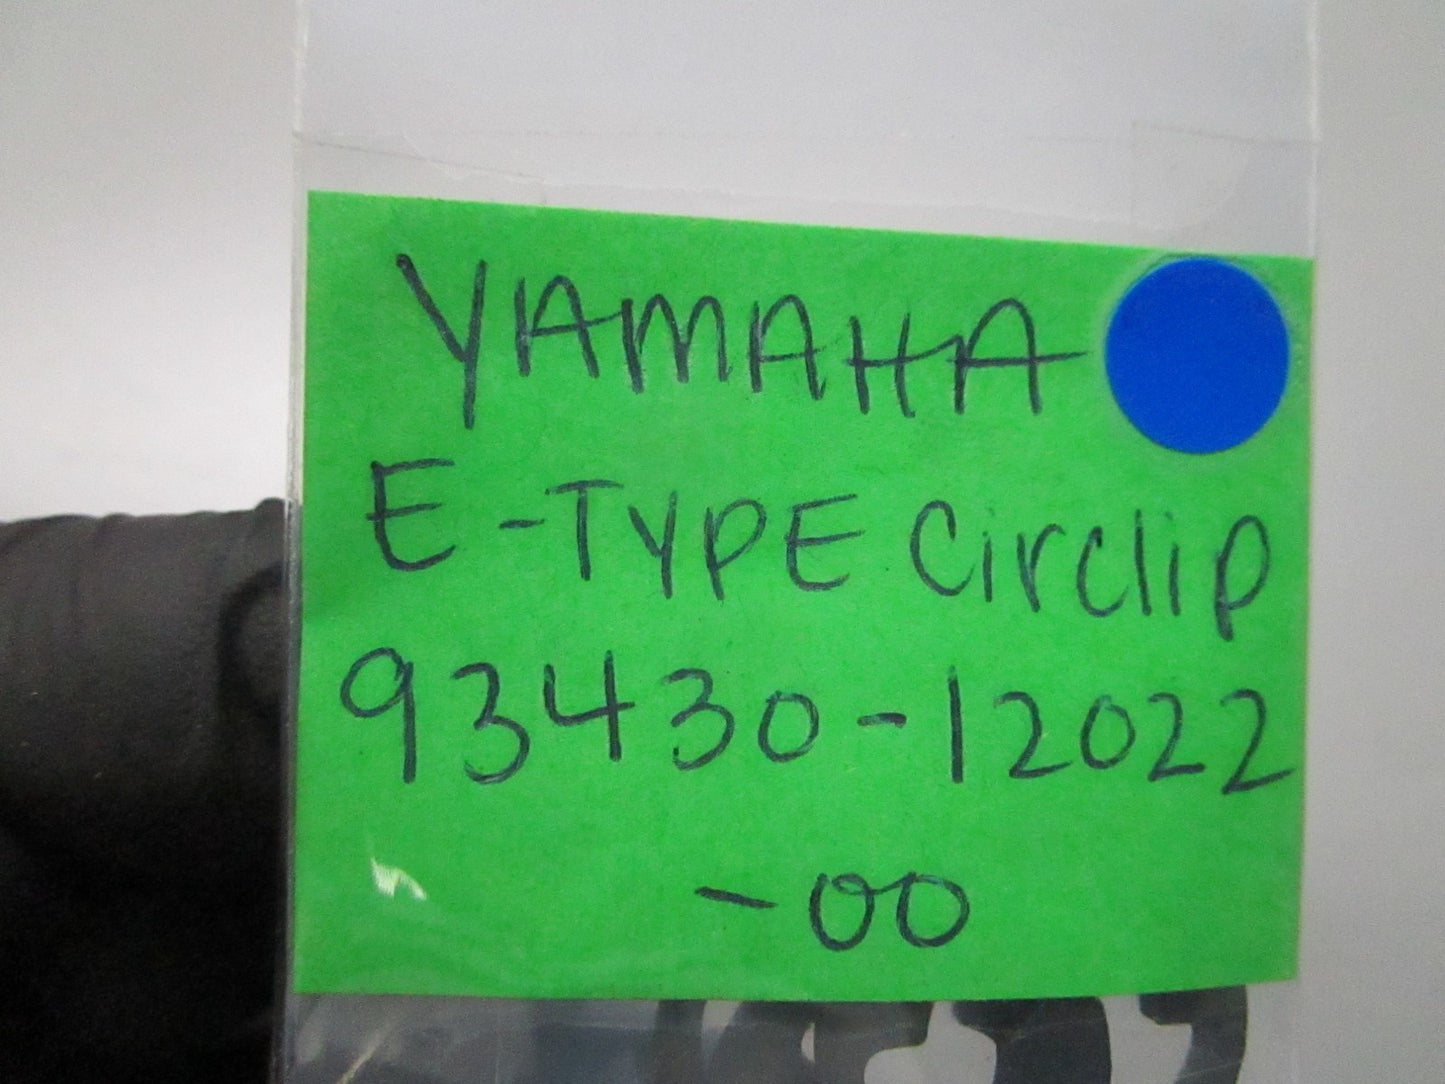 YAMAHA
E-TYPE Circlip
93430-12022
-00